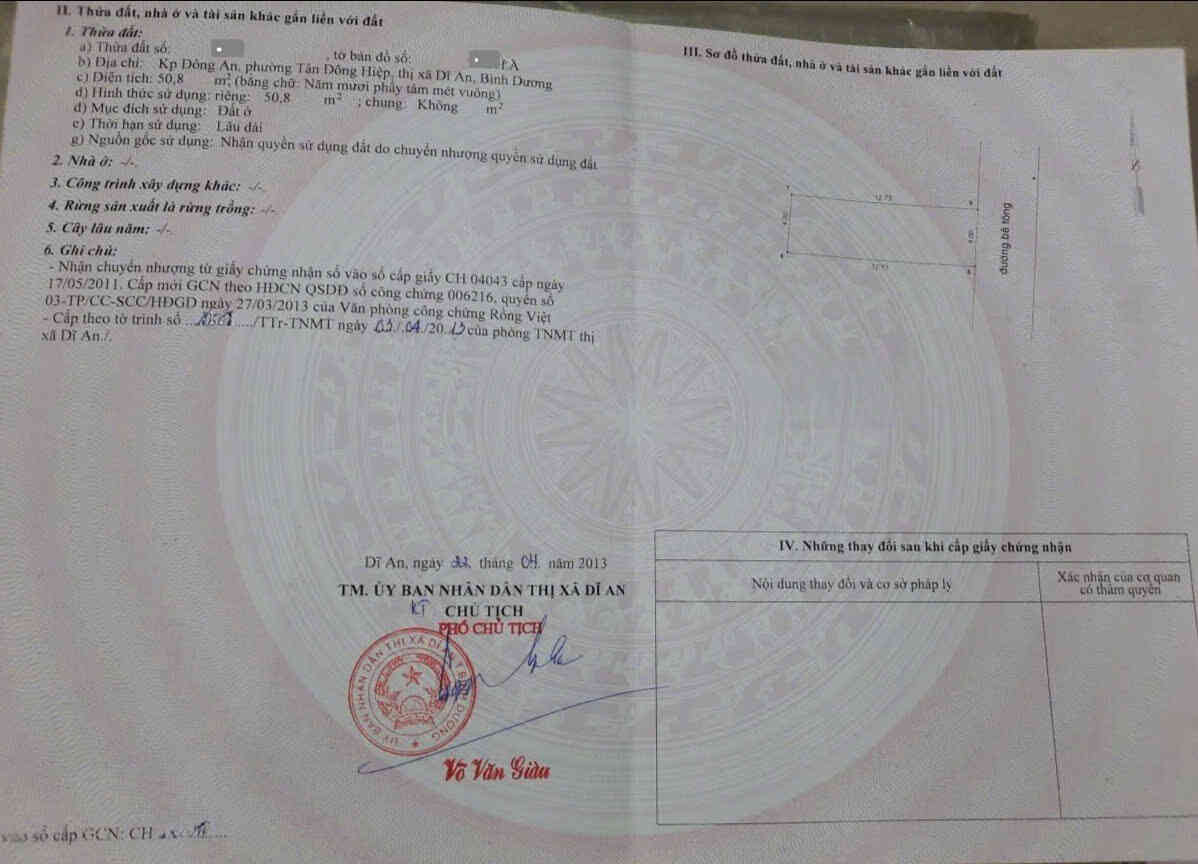 II. Thửa đất, nhà ở và tài sản khác gắn liền với đất
1. Thửa đất:
a) Thửa đất số: , tờ bản đồ số:
b) Địa chỉ: Kp Đông An, phường Tân Đông Hiệp, thị xã Dĩ An, Bình Dương
c) Diện tích: 50,8 m², (bằng chữ: Năm mươi phẩy tám mét vuông)
d) Hình thức sử dụng: riêng: 50,8 m² ; chung: Không m²
đ) Mục đích sử dụng: Đất ở
e) Thời hạn sử dụng: Lâu dài
g) Nguồn gốc sử dụng: Nhận quyền sử dụng đất do chuyển nhượng quyền sử dụng đất
2. Nhà ở: -/-.
3. Công trình xây dựng khác: -/-.
4. Rừng sản xuất là rừng trồng: -/-.
5. Cây lâu năm: -/-.
6. Ghi chú:
- Nhận chuyển nhượng từ giấy chứng nhận số vào sổ cấp giấy CH 04043 cấp ngày
17/05/2011. Cấp mới GCN theo HĐCN QSDĐ số công chứng 006216, quyển số
03-TP/CC-SCC/HĐGD ngày 27/03/2013 của Văn phòng công chứng Rồng Việt
- Cấp theo tờ trình số ...../TTr-TNMT ngày 03./.04./20.13 của phòng TNMT thị
xã Dĩ An./.
Dĩ An, ngày 22. tháng 04. năm 2013
TM. ỦY BAN NHÂN DÂN THỊ XÃ DĨ AN
KT CHỦ TỊCH
PHÓ CHỦ TỊCH
ỦY BAN NHÂN DÂN THỊ XÃ DĨ AN T. BÌNH DƯƠNG
Võ Văn Giàu
vào sổ cấp GCN: CH
III. Sơ đồ thửa đất, nhà ở và tài sản khác gắn liền với đất
12.73
4.00
4.00
đường bê tông
IV. Những thay đổi sau khi cấp giấy chứng nhận
Nội dung thay đổi và cơ sở pháp lý
Xác nhận của cơ quan
có thẩm quyền